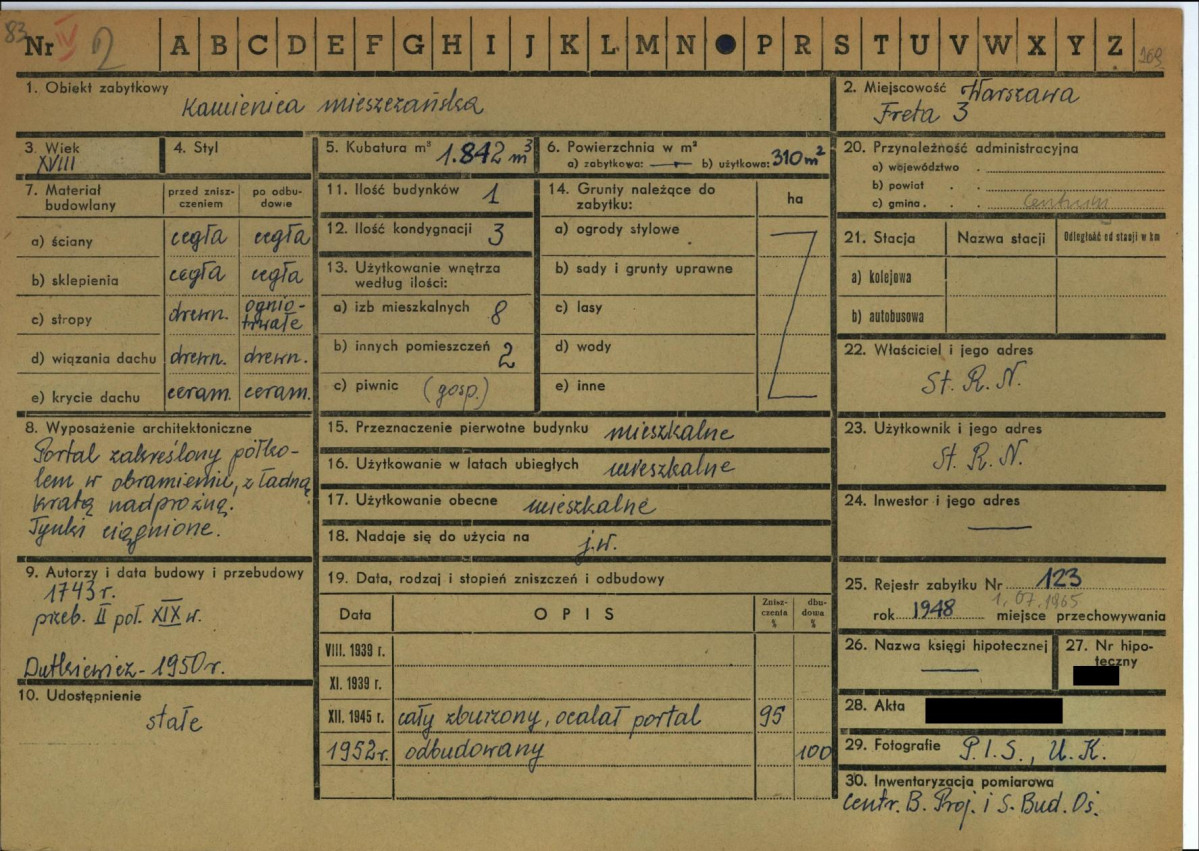 83 Nr IV 2 A B C D E F G H I J K L M N P R S T U V W X Y Z 169
1. Obiekt zabytkowy Kamienica mieszczańska
2. Miejscowość Warszawa
Freta 3
3. Wiek XVIII
4. Styl
5. Kubatura m³ 1.842 m³
6. Powierzchnia w m²
a) zabytkowa: — b) użytkowa: 310 m²
7. Materiał budowlany
przed zniszczeniem
po odbudowie
a) ściany cegła cegła
b) sklepienia cegła cegła
c) stropy drewn. ognio-
trwałe
d) wiązania dachu drewn. drewn.
e) krycie dachu ceram. ceram.
8. Wyposażenie architektoniczne
Portal zakreślony półko-
lem w obramieniu, z ładną
kratą nadprożną.
Tynki ciągnione.
9. Autorzy i data budowy i przebudowy
1743 r.
przeb. II poł. XIX w.
Dutkiewicz - 1950 r.
10. Udostępnienie
stałe
11. Ilość budynków 1
12. Ilość kondygnacji 3
13. Użytkowanie wnętrza
według ilości:
a) izb mieszkalnych 8
b) innych pomieszczeń 2
c) piwnic (gosp.)
14. Grunty należące do
zabytku:
ha
a) ogrody stylowe
b) sady i grunty uprawne
c) lasy
d) wody
e) inne
15. Przeznaczenie pierwotne budynku mieszkalne
16. Użytkowanie w latach ubiegłych mieszkalne
17. Użytkowanie obecne mieszkalne
18. Nadaje się do użycia na j.w.
19. Data, rodzaj i stopień zniszczeń i odbudowy
Data OPIS Znisz-
czenia
% dbu-
dowa
%
VIII. 1939 r.
XI. 1939 r.
XII. 1945 r. cały zburzony, ocalał portal 95
1952 r. odbudowany 100
20. Przynależność administracyjna
a) województwo
b) powiat
c) gmina
21. Stacja Nazwa stacji Odległość od stacji w km
a) kolejowa
b) autobusowa
22. Właściciel i jego adres
St. R. N.
23. Użytkownik i jego adres
St. R. N.
24. Inwestor i jego adres
—
25. Rejestr zabytku Nr 123
1.07.1965
rok 1948 miejsce przechowywania
26. Nazwa księgi hipotecznej
—
27. Nr hipo-
teczny
28. Akta
29. Fotografie P.I.S., U.K.
30. Inwentaryzacja pomiarowa
Centr. B. Proj. i S. Bud. Os.